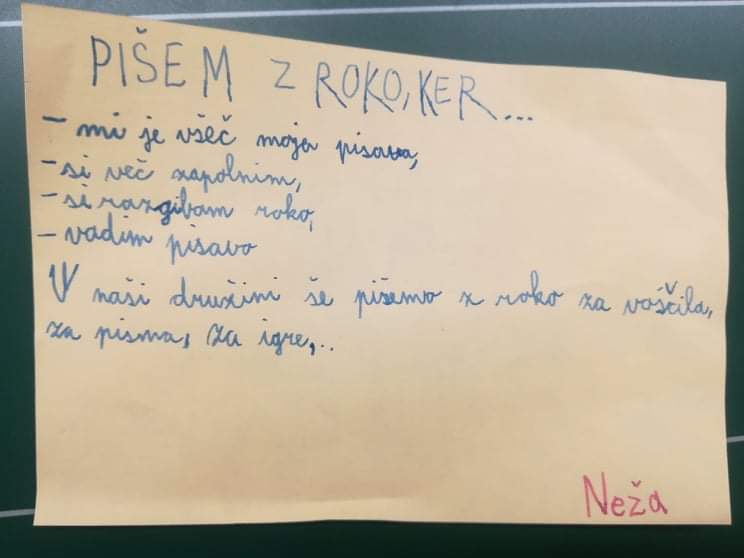 PIŠEM Z ROKO, KER...
- mi je všeč moja pisava,
- si več zapolnim,
- si razgibam roko,
- vadim pisavo
V naši družini še pišemo z roko za voščila,
za pisma, za igre,..
Neža